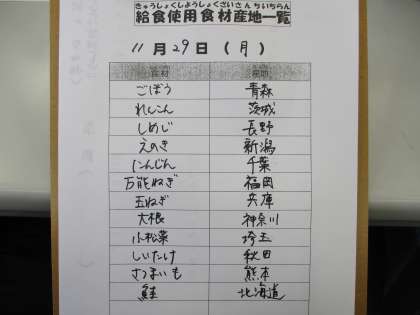 きゅうしょくしようしょくざいさんちいちらん
給食使用食材産地一覧
11月29日（月）
食材 産地
ごぼう 青森
れんこん 茨城
しめじ 長野
えのき 新潟
にんじん 千葉
万能ねぎ 福岡
玉ねぎ 兵庫
大根 神奈川
小松菜 埼玉
しいたけ 秋田
さつまいも 熊本
鮭 北海道